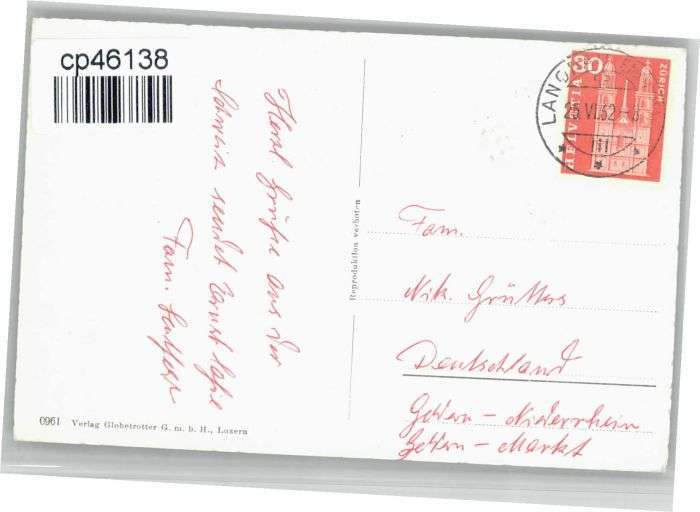 cp46138
Herzl. Grüße aus der
Schweiz sendet Ernst
Fam.
0961 Verlag Globetrotter G. m. b. H., Luzern
Reproduktion verboten
30
HELVETIA
ZÜRICH
25.VI.62
Fam.
Nik. Grütters
Deutschland
Geldern - Niederrhein
Geldern - Markt